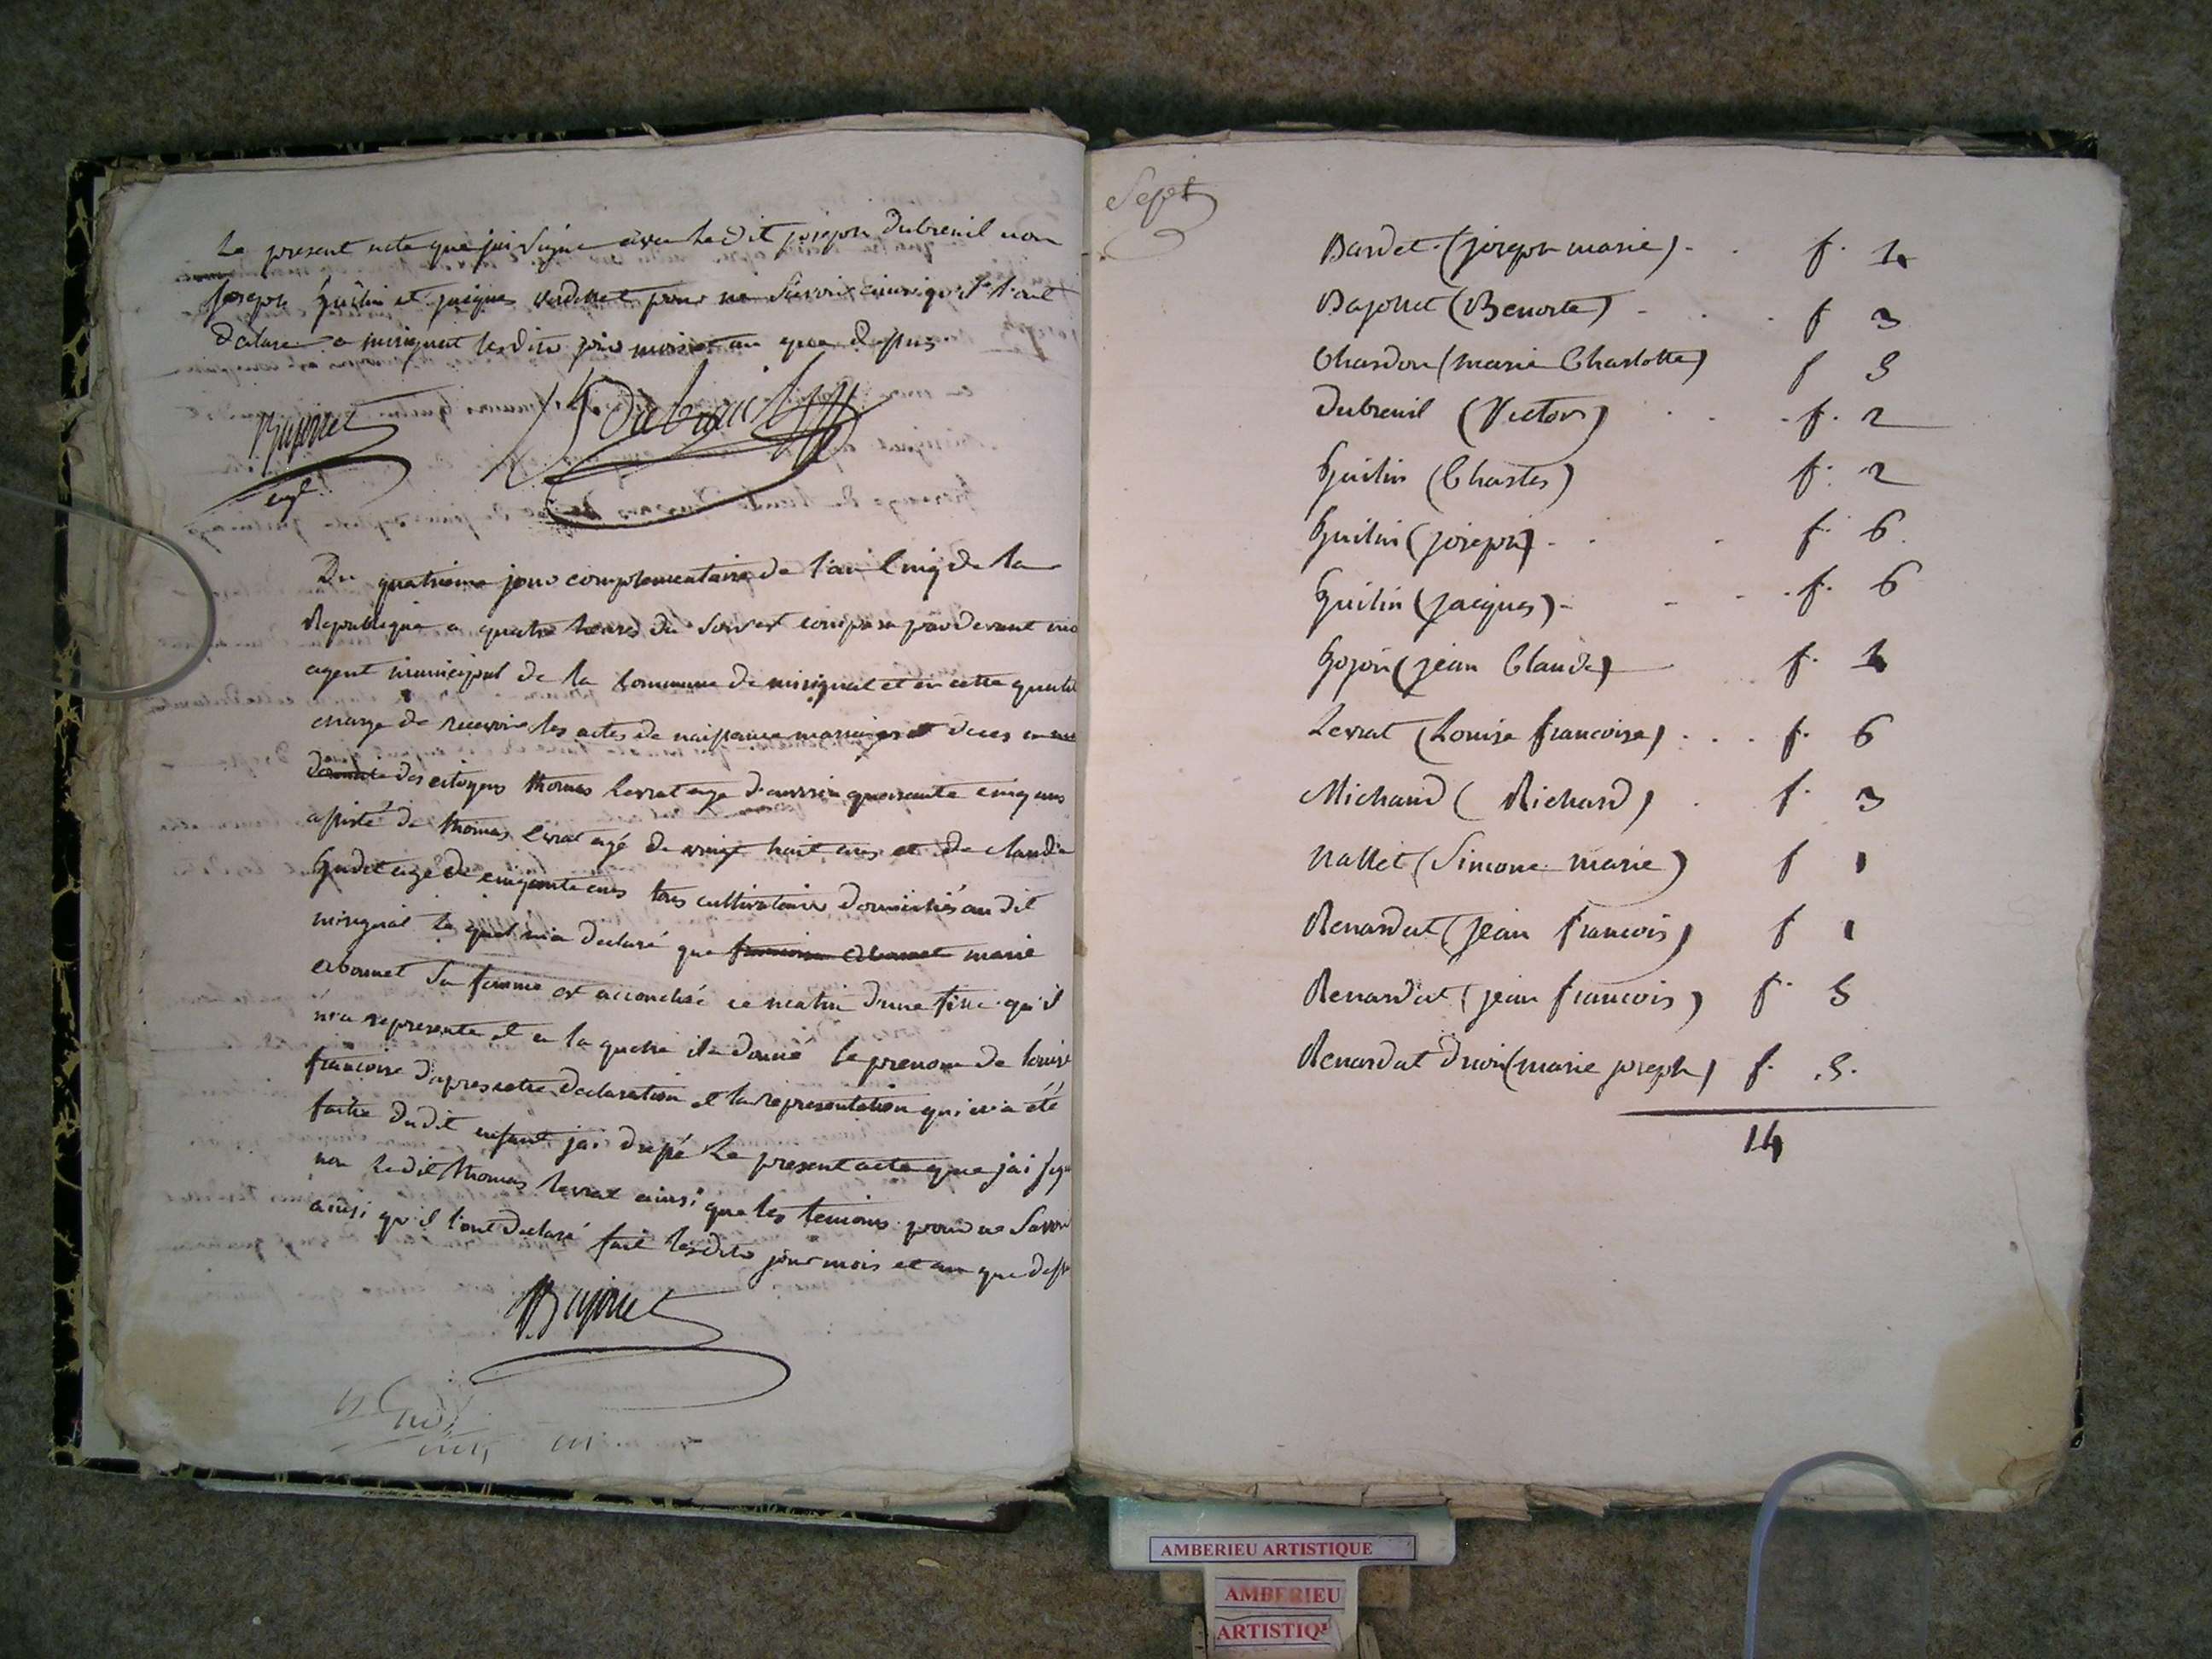 Le present acte que jai signé avec le dit joseph Dubreuil non
joseph Guilin et jacques pour ne savoir ainsi qu'il l'ont
Declaré a mirignat lesdits jour mois et an que dessus
Bajollet
agt
Dubreuil
Du quatrieme jour complementaire de l'an Cinq de la
Republique a quatre heures du Soir est comparu pardevant moi
agent municipal de la Commune de mirignat et en cette qualité
charge de recevoir les actes de naissance mariages et deces
des citoyens thomas levrat age d'environ quarante cinq ans
assisté de thomas levrat agé de vingt huit ans et de claude
agé de cinquante ans tous cultivateurs domiciliés au dit
mirignat le quel m'a declaré que marie
abonnel sa femme est accouchée ce matin d'une fille qu'il
m'a representé et a la quelle il a donné le prenom de louise
francoise d'apres cette declaration et la representation qui m'a été
faitte dudit enfant jai dressé Le present acte que jai signé
non ledit thomas levrat ainsi que les temoins pour ne savoir
ainsi qu'il l'ont declaré fait lesdits jour mois et an que dessus
Bajollet
Sept
Bardet (joseph marie) - . f. 4
Bajollet (Benoite) - . . f 3
Chardon (marie Charlotte) f 5
Dubreuil (Victor) . . - f. 2
Guilin (Charles) f. 2
Guilin (joseph) - . . f. 6.
Guilin (jacques) - - . . f. 6
Gojon (jean Claude) f. 4
Levrat (Louise francoise) . . . f. 6
Michaud (Richard) . f. 3
Nallet (Simone marie) f 1
Renardat (jean francois) f 1
Renardat (jean francois) f. 5
Renardat Druon (marie joseph) f. 5.
14
AMBERIEU ARTISTIQUE
AMBERIEU
ARTISTIQ